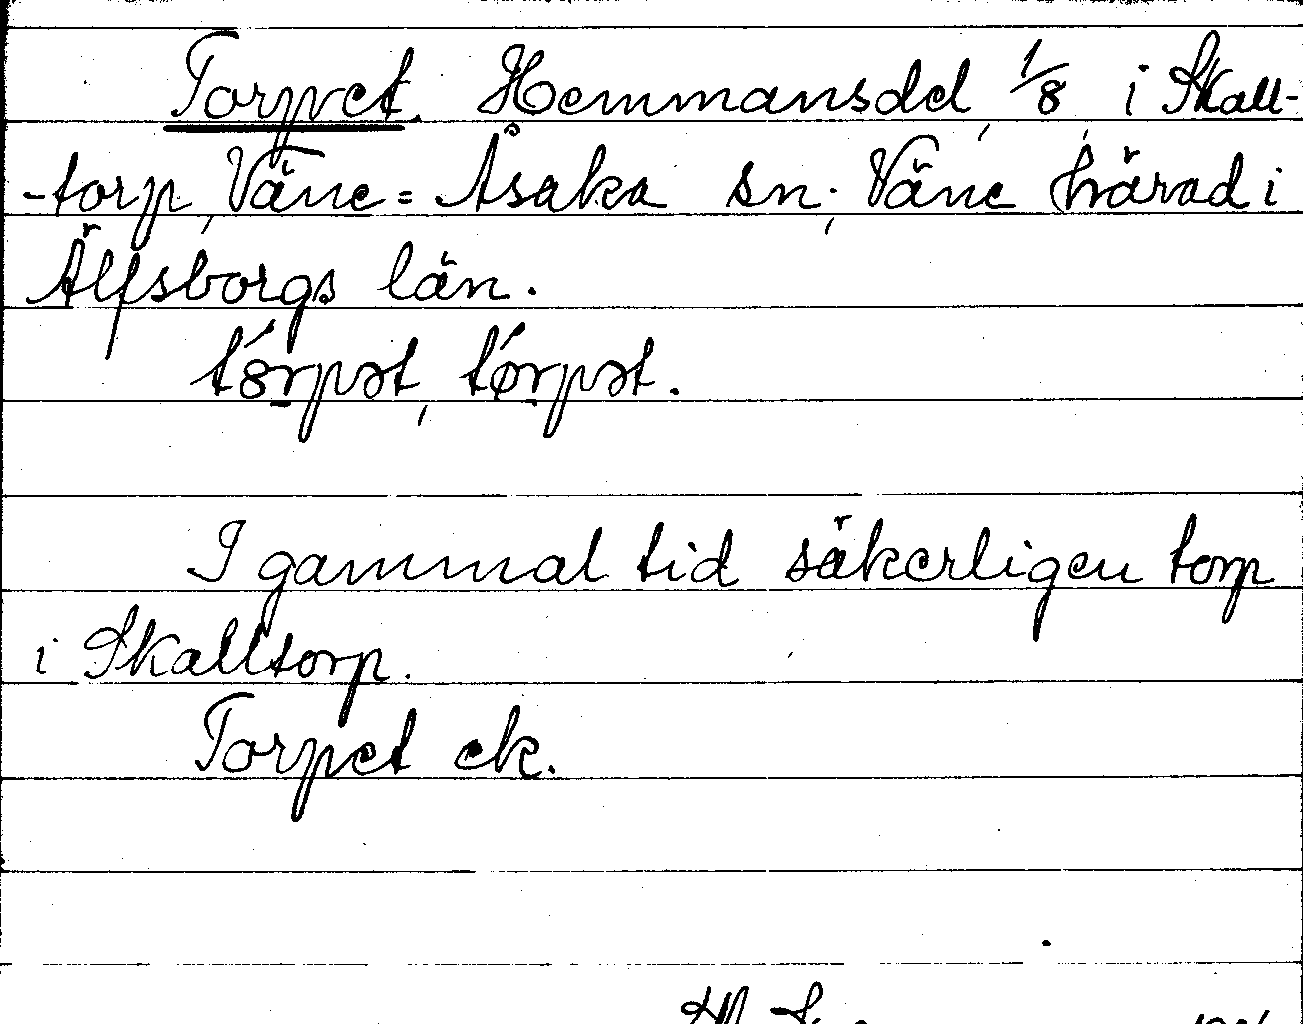 Torpet. Hemmansdel, 1/8, i Skall-
-torp, Väne=Åsaka sn; Väne härad i
Älfsborgs län.
t8́rpət, tǿrpət.
I gammal tid säkerligen torp
i Skalltorp.
Torpet ek.